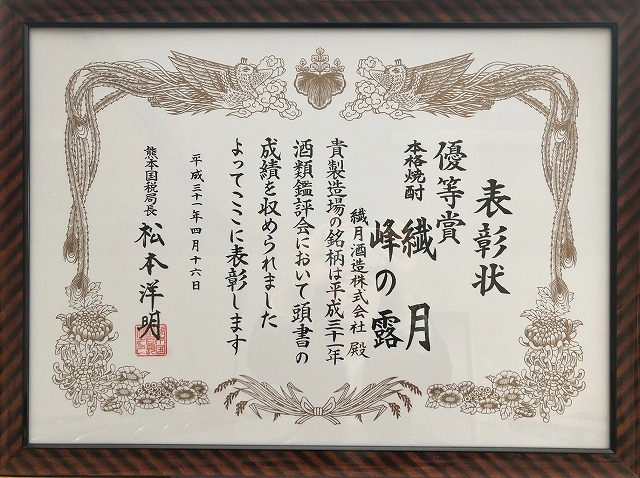 表彰状
優等賞
本格焼酎 繊月
峰の露
繊月酒造株式会社 殿
貴製造場の銘柄は平成三十一年
酒類鑑評会において頭書の
成績を収められました
よってここに表彰します
平成三十一年四月十六日
熊本国税局長 松本洋明